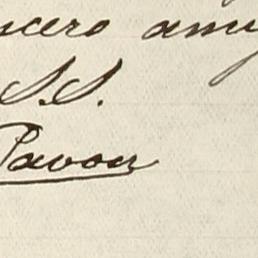 ncero ami
S.S.
Pavon